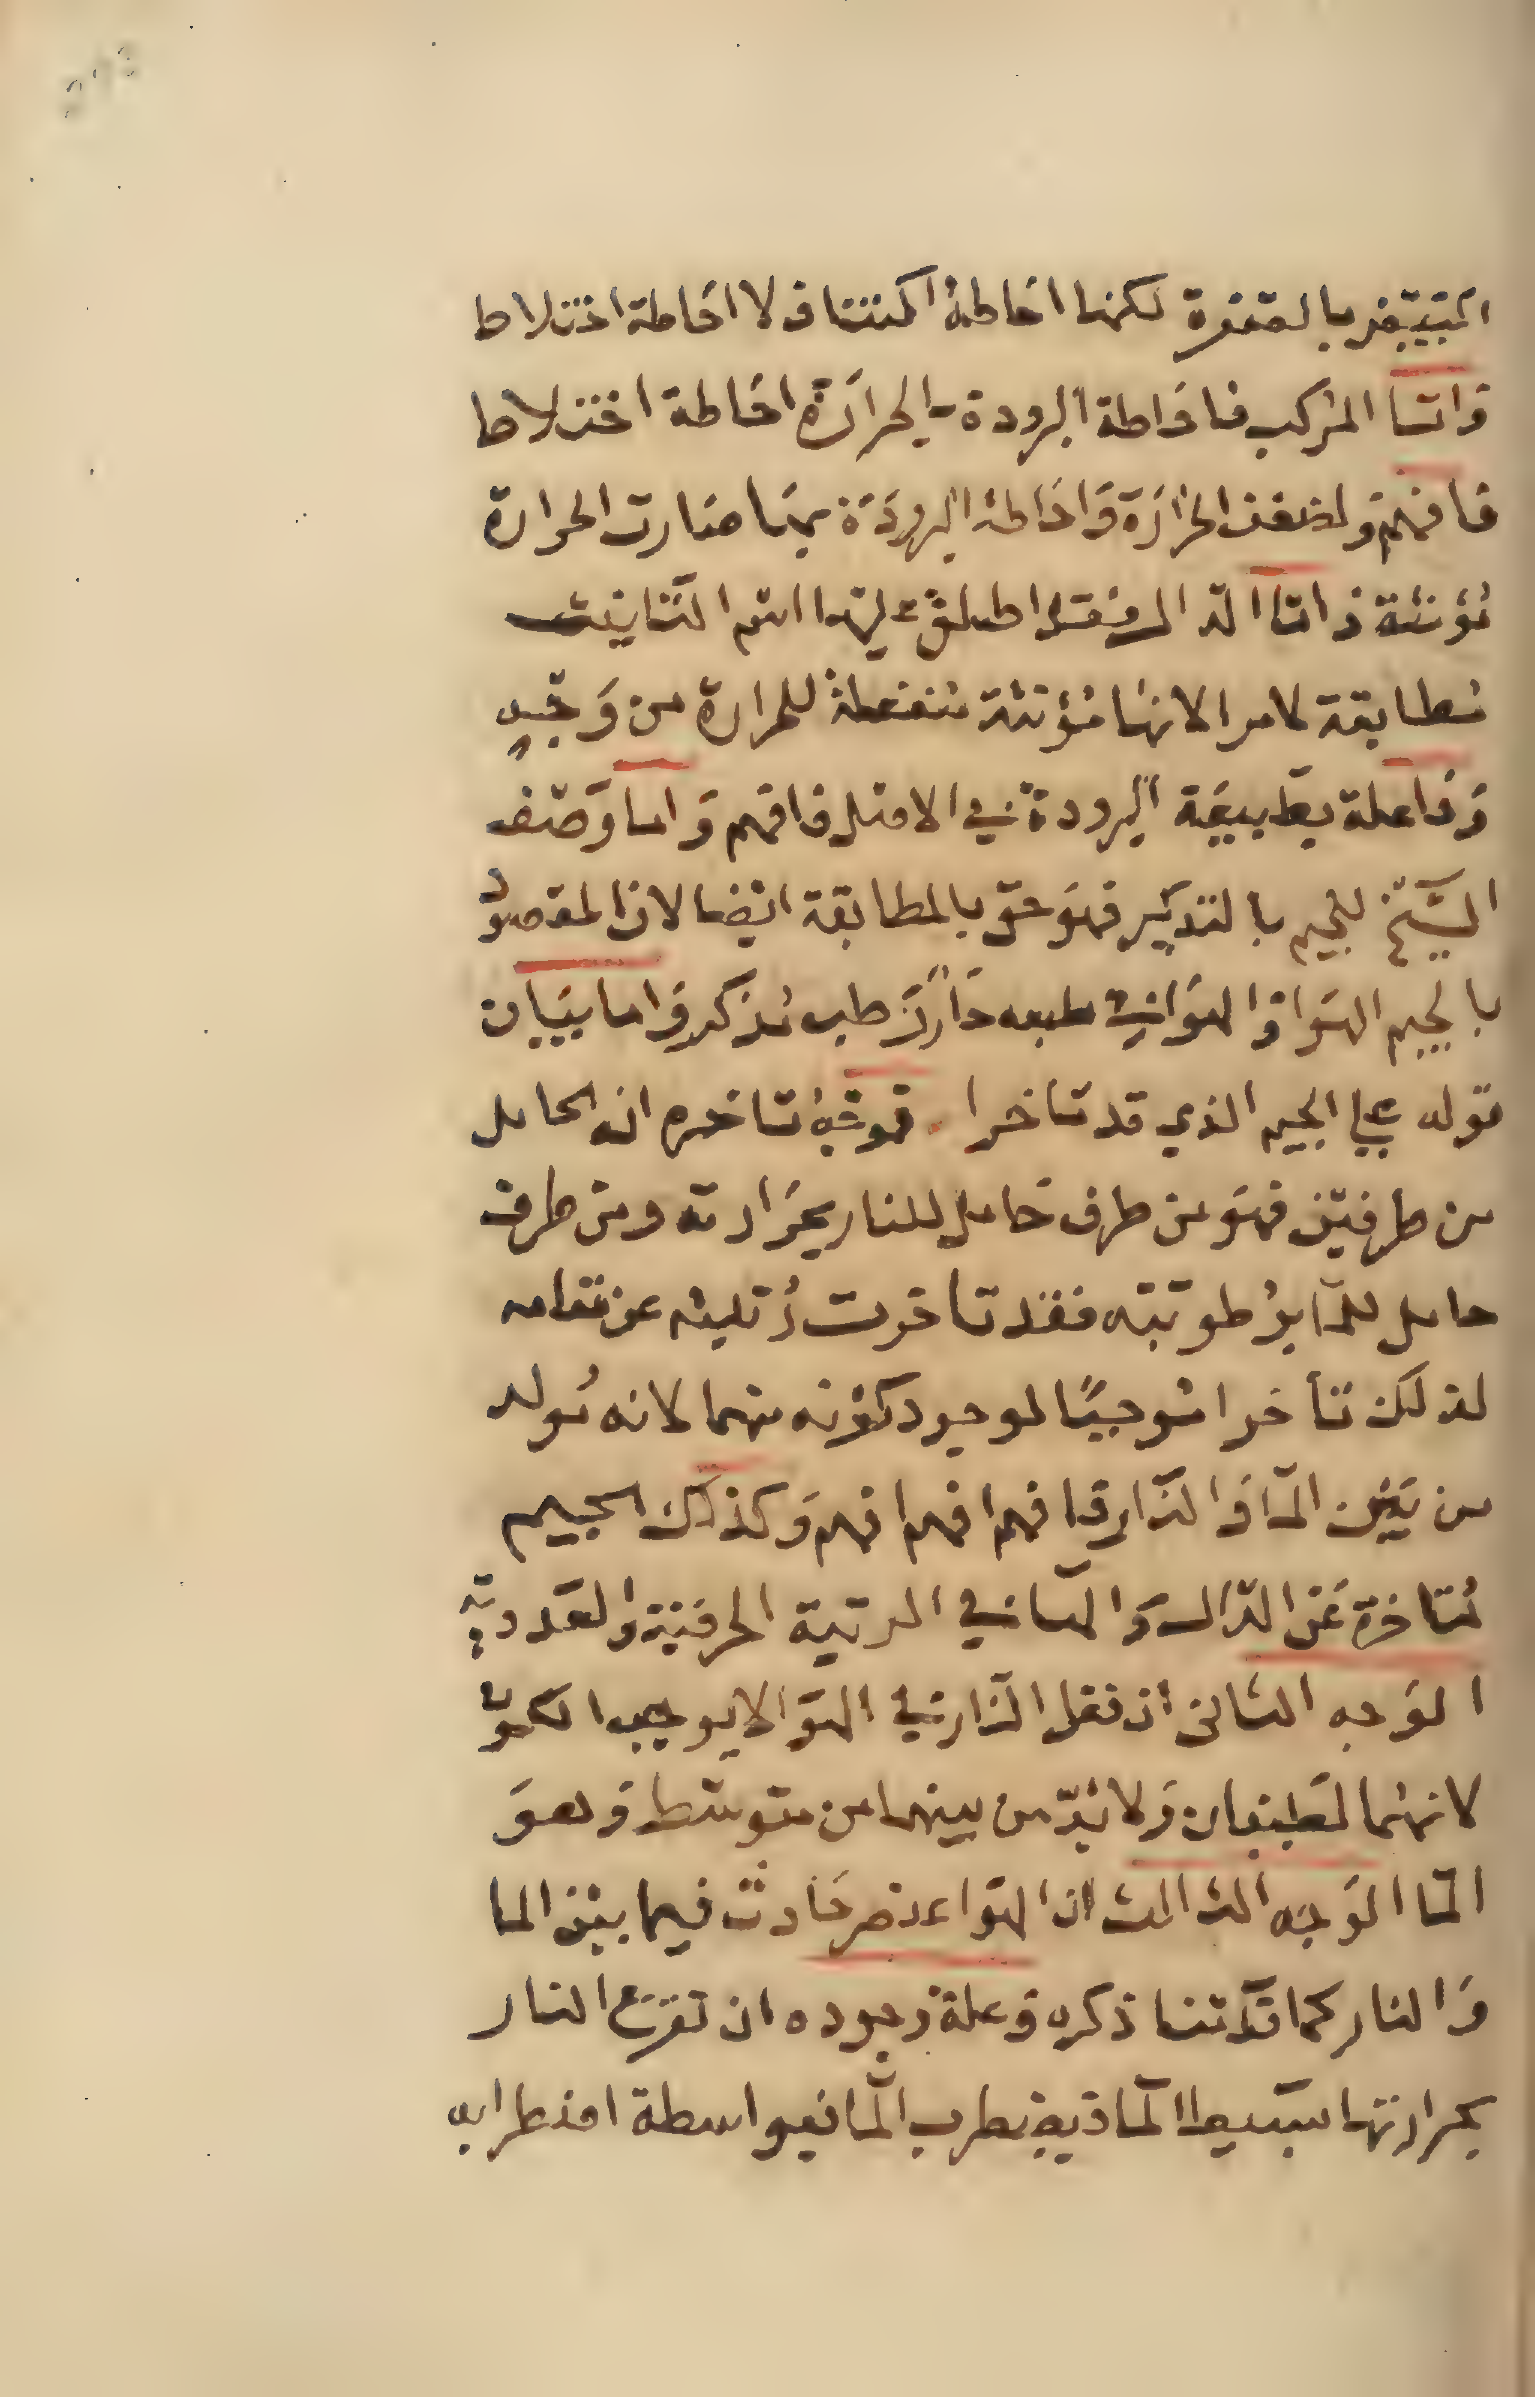 البيض بالصفرة لكنها احاطة اكتناف لا احاطة اختلاط
واما المركب فاحاطة البرودة بالحرارة احاطة اختلاط
فافهم ولضعف الحرارة واحاطة البرودة بها صارت الحرارة
مؤنثة فاما الدال فقد اطلق عليها اسم التانيث
مطابقة لامر الانها مؤنثة منفعلة للحرارة من وجه
وفاعلة بطبيعة البرودة في الاصل فافهم واما وصف
الشيخ للجيم بالتذكير فهو حق بالمطابقة ايضا لان المقصود
بالجيم الهوا والهوا في طبعه حار رطب مذكر واما بيان
قوله على الجيم الذي قد تاخرا فوجه تاخره انه الحامل
من طرفين فهو من طرف حامل للنار بحرارته ومن طرف
حامل للما برطوبته فقد تاخرت رتبته عن مقامه
لذلك تأخرا موجبًا لوجود كونه منهما لانه مولد
من بين الما والنار فافهم افهم افهم وكذلك الجيم
متاخرة عن الدال والما في الرتبة الحرفية والعددية
الوجه الثاني ان فعل النار في الهوا لا يوجب التكون
لانهما لطيفان ولا بد من بينهما من متوسط وهو
الما الوجه الثالث ان الهوا عنصر حادث فيما بين الما
والنار كما قدمنا ذكره وعلة وجوده ان تقرع النار
بحرارتها بسيط الما فيضطرب الما فبواسطة اضطرابه